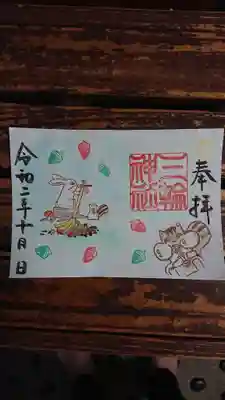 奉拝
三輪神社
令和二年十月 日